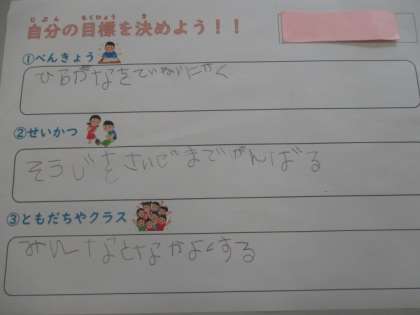 じぶん もくひょう き
自分の目標を決めよう!!
①べんきょう
ひらがなをていねいにかく
②せいかつ
そうじをさいごまでがんばる
③ともだちやクラス
みんなとなかよくする